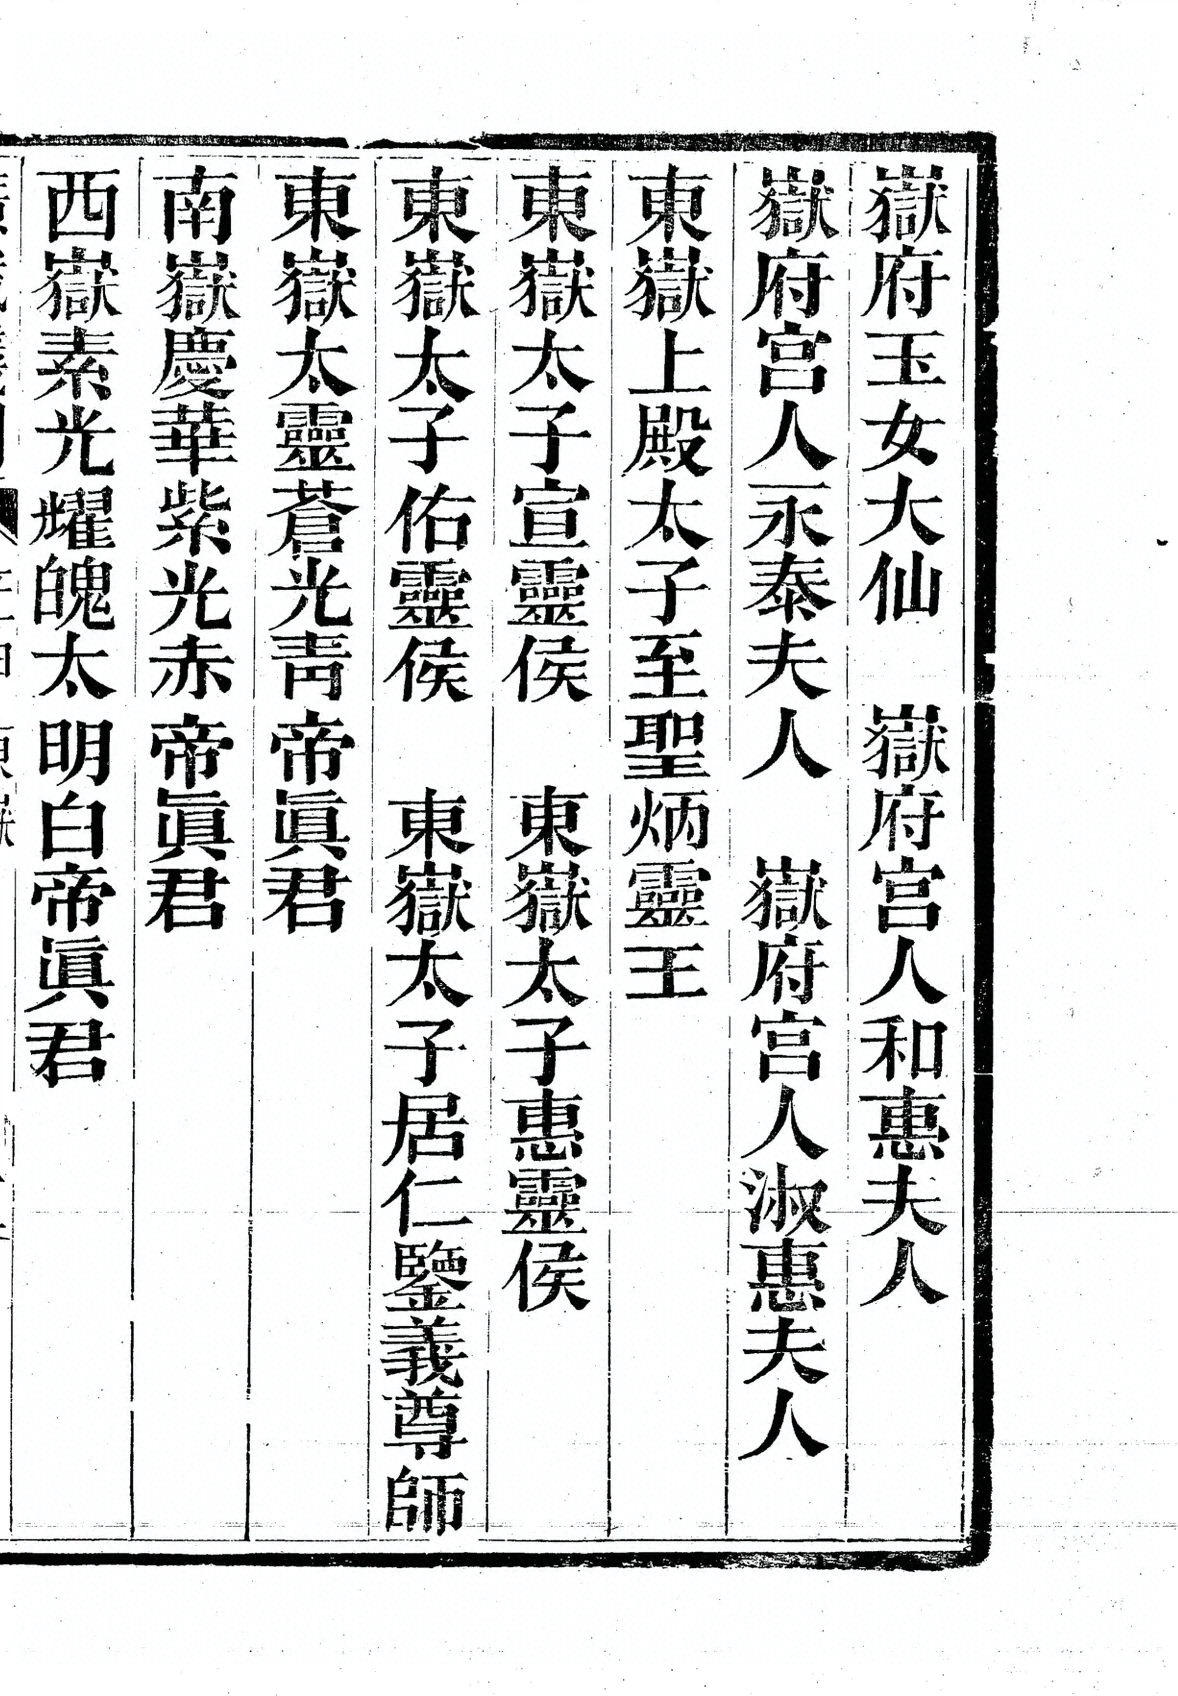 嶽府玉女大仙　嶽府宫人和惠夫人
嶽府宫人永泰夫人　嶽府宫人淑惠夫人
東嶽上殿太子至聖炳靈王
東嶽太子宣靈侯　東嶽太子惠靈侯
東嶽太子佑靈侯　東嶽太子居仁鑒義尊師
東嶽太靈蒼光靑帝眞君
南嶽慶華紫光赤帝眞君
西嶽素光耀魄太明白帝眞君